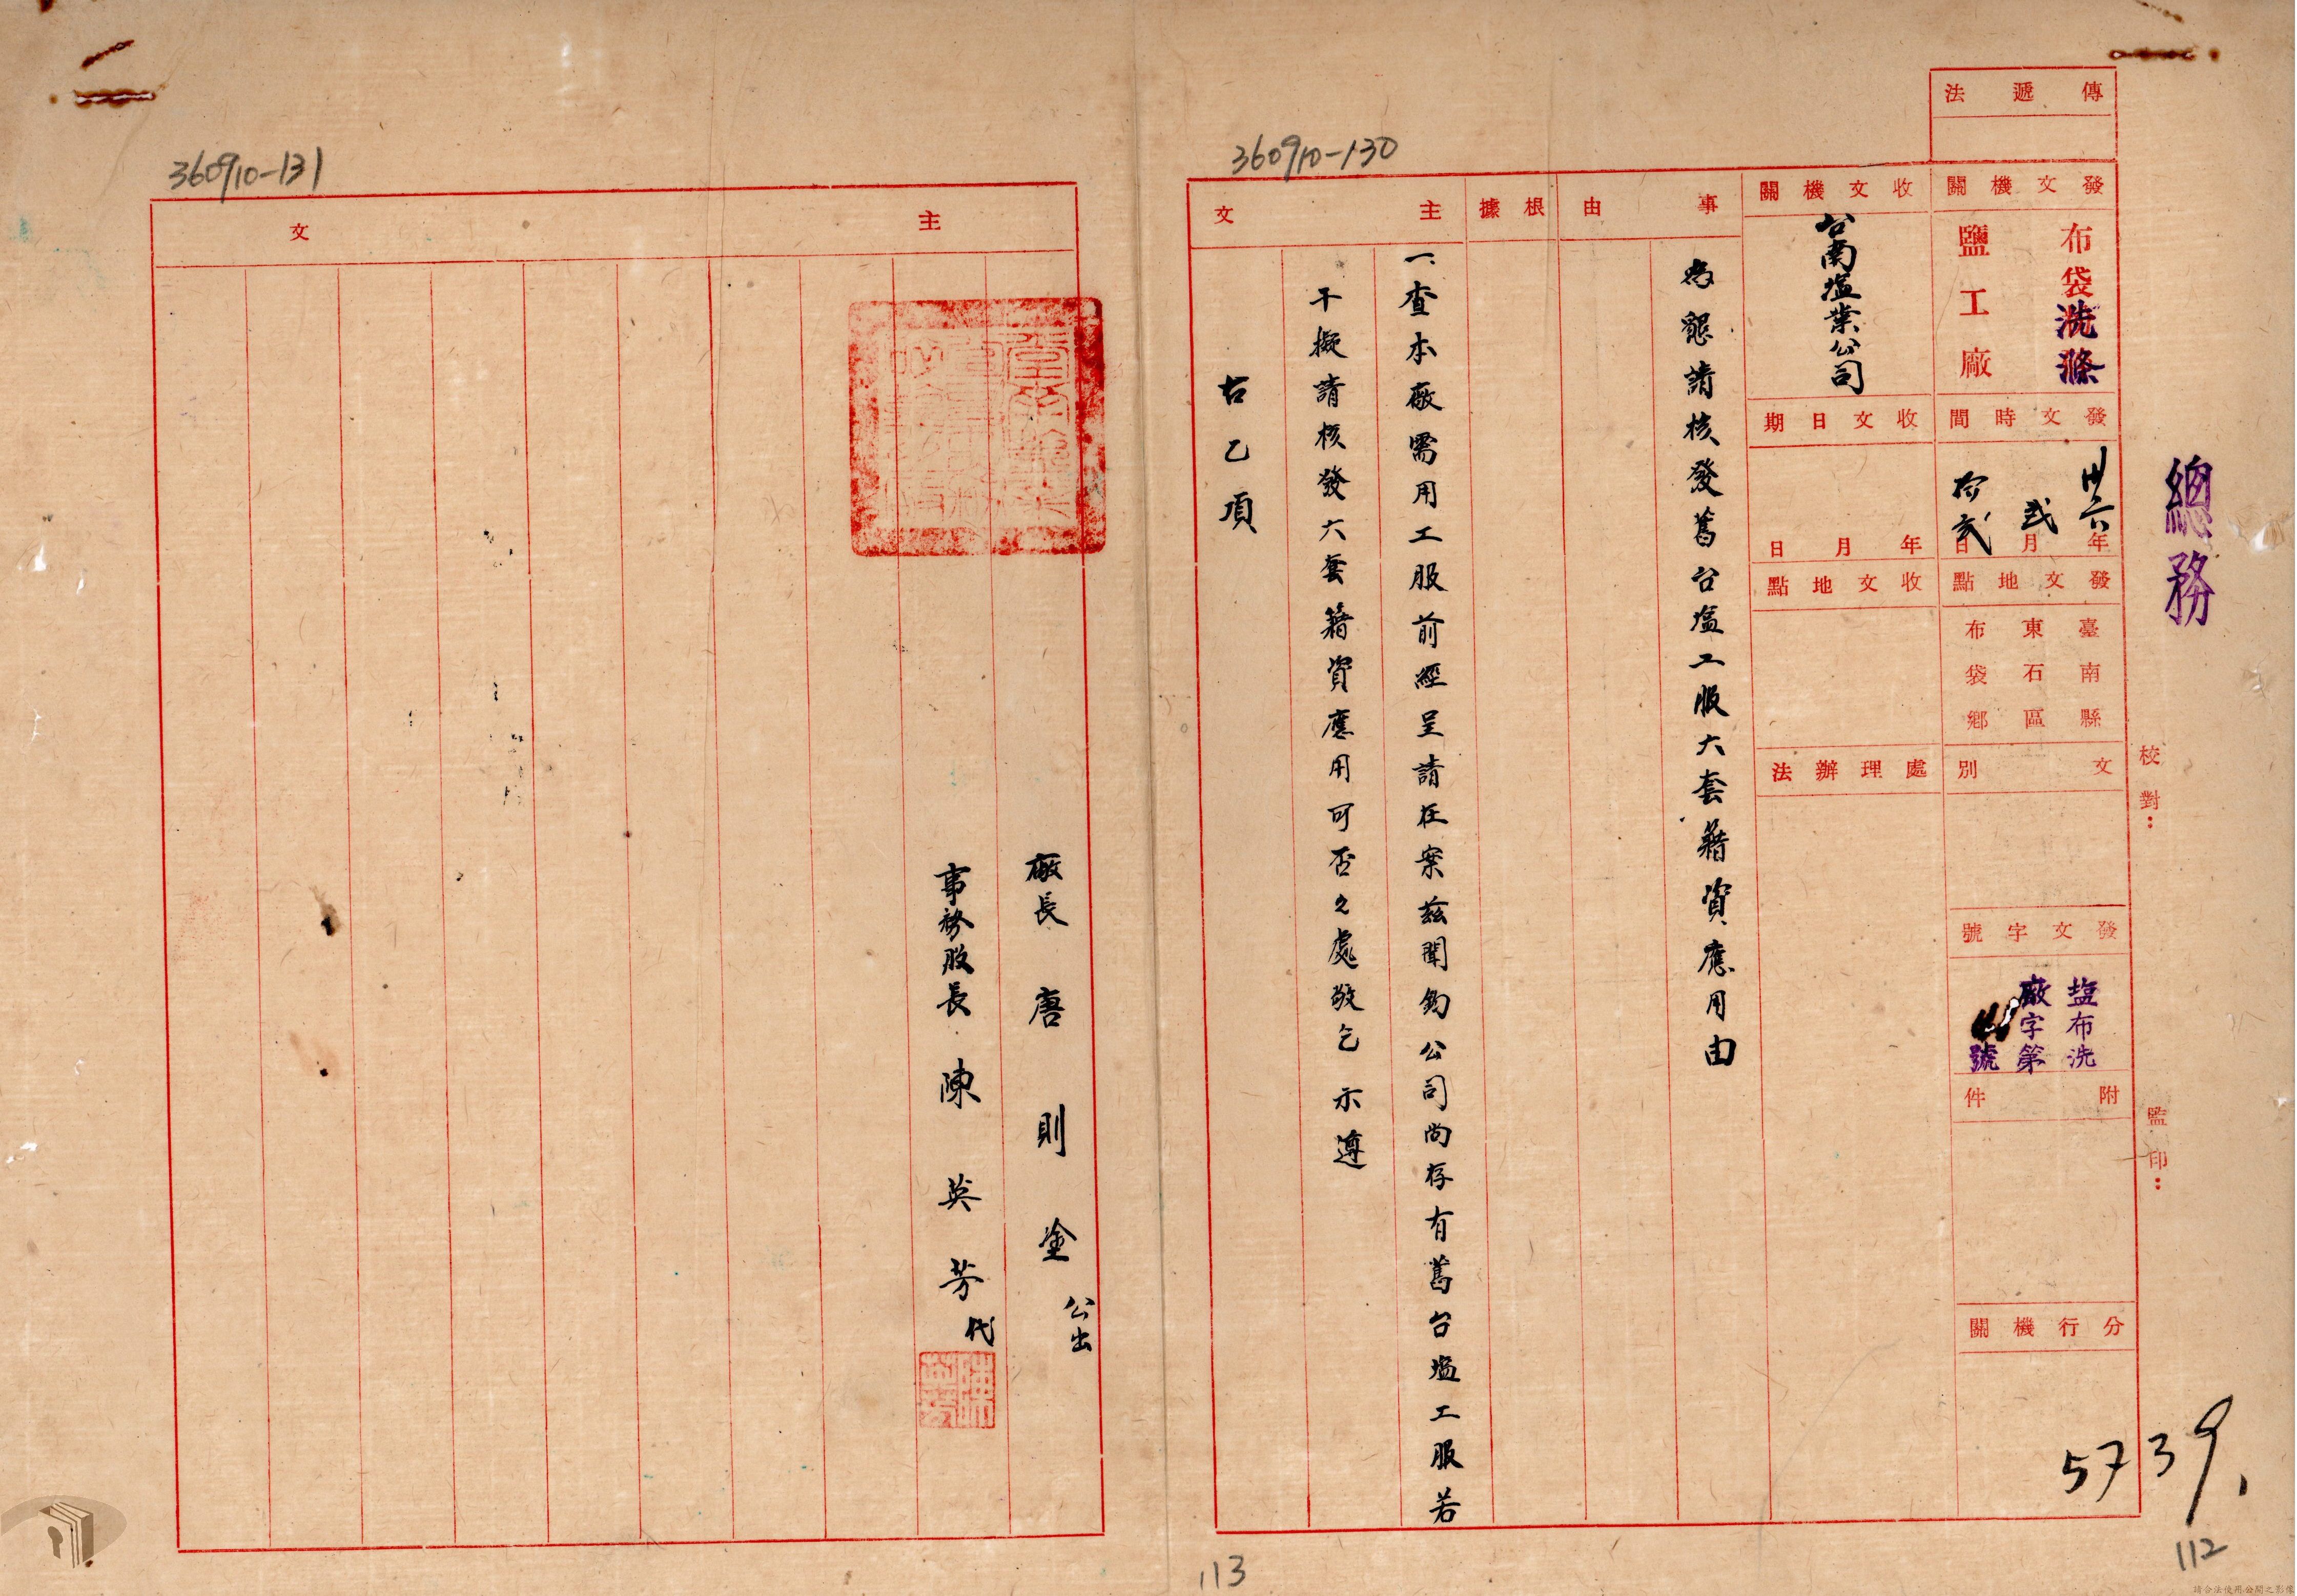 360910-130
傳遞法
發文機關
布袋洗滌
鹽工廠
發文時間
卅六年
貳月
拾貳日
發文地點
臺南縣
東石區
布袋鄉
文別
發文字號
塩布洗
廠字第
號
附件
分行機關
總務
校對：
監印：
收文機關
台南塩業公司
收文日期
年月日
收文地點
處理辦法
事由
為懇請核發舊台塩工服六套藉資應用由
根據
主文
一、查本廠需用工服前經呈請在案茲聞鈞公司尚存有舊台塩工服若
干擬請核發六套藉資應用可否之處敬乞 示遵
右乙項
5739
112
113
360910-131
主文
廠長 唐則塗 公出
事務股長 陳英芳 代
陳英芳
請合法使用公開之影像